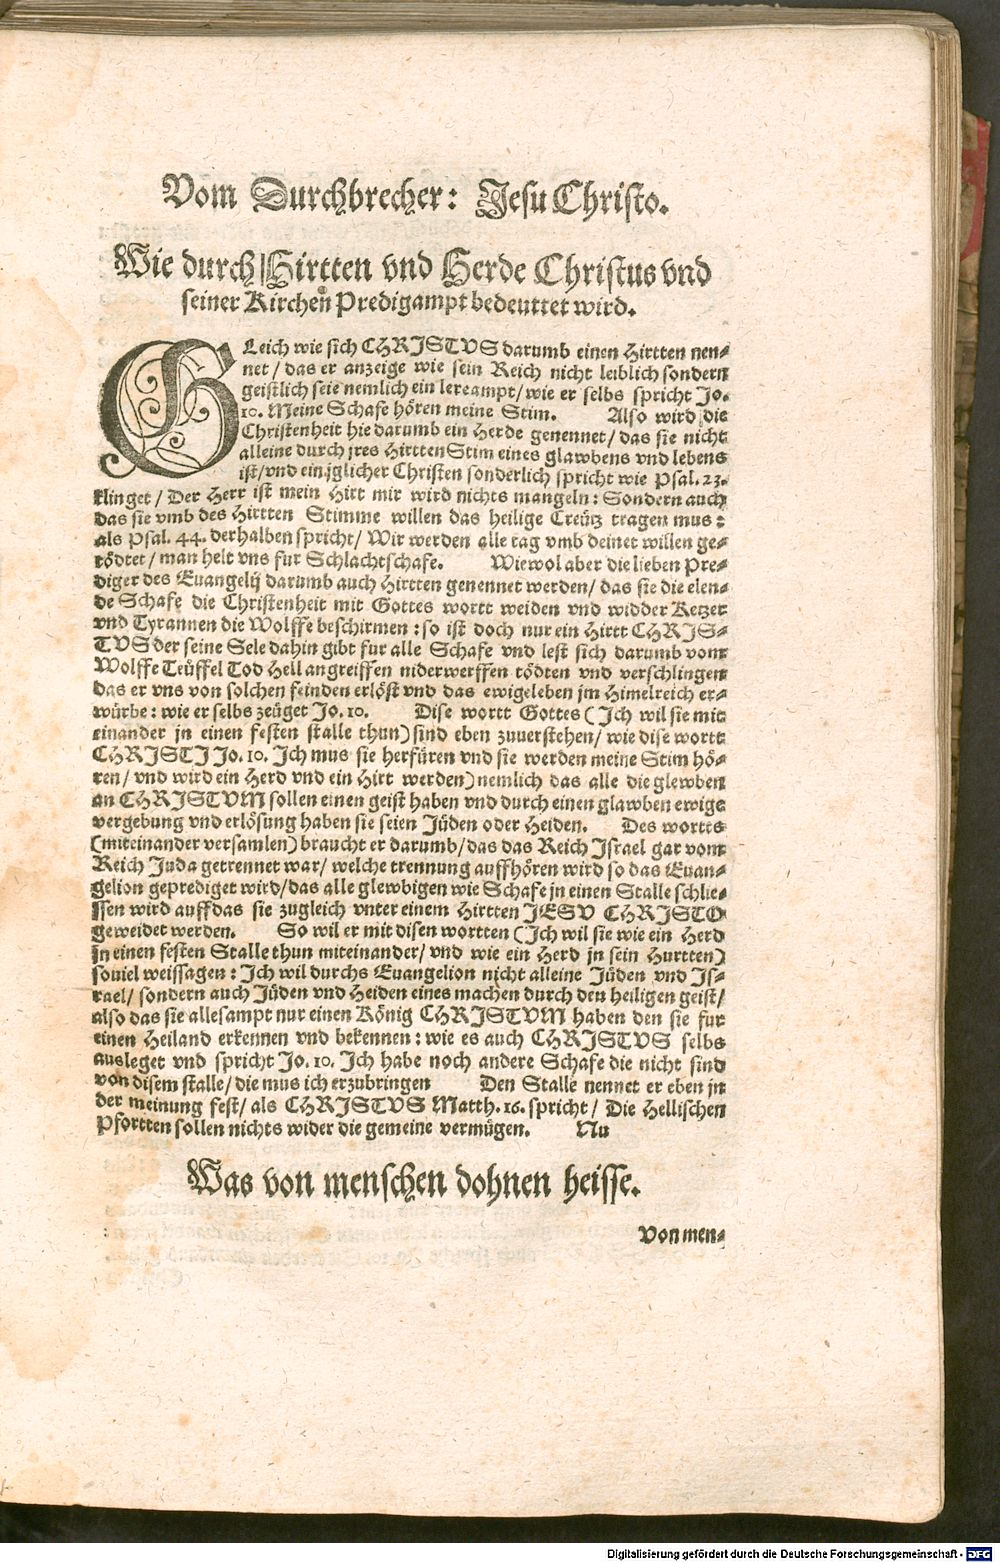 Vom Durchbrecher: Jesu Christo.
Wie durch Hirtten vnd Herde Christus vnd
seiner Kirchen Predigampt bedeuttet wird.
GLeich wie sich CHRISTVS darumb einen Hirtten nen-
net / das er anzeige wie sein Reich nicht leiblich sondern
geistlich seie nemlich ein lereampt / wie er selbs spricht Jo.
10. Meine Schafe hören meine Stim. Also wird die
Christenheit hie darumb ein Herde genennet / das sie nicht
alleine durch jres Hirtten Stim eines glawbens vnd lebens
ist / vnd ein jglicher Christen sonderlich spricht wie Psal. 23.
klinget / Der Herr ist mein Hirt mir wird nichts mangeln: Sondern auch
das sie vmb des Hirtten Stimme willen das heilige Creütz tragen mus:
als Psal. 44. derhalben spricht / Wir werden alle tag vmb deinet willen ge-
tödtet / man helt vns fur Schlachtschafe. Wiewol aber die lieben Pre-
diger des Euangelij darumb auch Hirtten genennet werden / das sie die elen-
de Schafe die Christenheit mit Gottes wortt weiden vnd widder Ketzer
vnd Tyrannen die Wolffe beschirmen: so ist doch nur ein Hirtt CHRIS-
TVS der seine Sele dahin gibt fur alle Schafe vnd lest sich darumb vom
Wolffe Teüffel Tod Hell angreiffen niderwerffen tödten vnd verschlingen
das er vns von solchen feinden erlöst vnd das ewige leben jm Himelreich er-
würbe: wie er selbs zeüget Jo. 10. Dise wortt Gottes (Jch wil sie mit
einander jn einen festen stalle thun) sind eben zuuerstehen / wie dise wortt
CHRISTI Jo. 10. Jch mus sie herfüren vnd sie werden meine Stim hö-
ren / vnd wird ein Herd vnd ein Hirt werden) nemlich das alle die glewben
an CHRISTVM sollen einen geist haben vnd durch einen glawben ewige
vergebung vnd erlösung haben sie seien Jüden oder Heiden. Des wortts
(miteinander versamlen) braucht er darumb / das das Reich Israel gar vom
Reich Juda getrennet war / welche trennung auffhören wird so das Euan-
gelion geprediget wird / das alle glewbigen wie Schafe jn einen Stalle schlie-
ssen wird auff das sie zugleich vnter einem Hirtten JESV CHRISTO
geweidet werden. So wil er mit disen wortten (Jch wil sie wie ein Herd
jn einen festen Stalle thun miteinander / vnd wie ein Herd jn sein Hurtten)
souiel weissagen: Jch wil durchs Euangelion nicht alleine Jüden vnd Js-
rael / sondern auch Jüden vnd Heiden eines machen durch den heiligen geist /
also das sie allesampt nur einen König CHRISTVM haben den sie fur
einen Heiland erkennen vnd bekennen: wie es auch CHRISTVS selbs
ausleget vnd spricht Jo. 10. Jch habe noch andere Schafe die nicht sind
von disem stalle / die mus ich erzubringen Den Stalle nennet er eben jn
der meinung fest / als CHRISTVS Matth. 16. spricht / Die Hellischen
Pfortten sollen nichts wider die gemeine vermügen. Nu
Was von menschen dohnen heisse.
Von men-
Digitalisierung gefördert durch die Deutsche Forschungsgemeinschaft - DFG